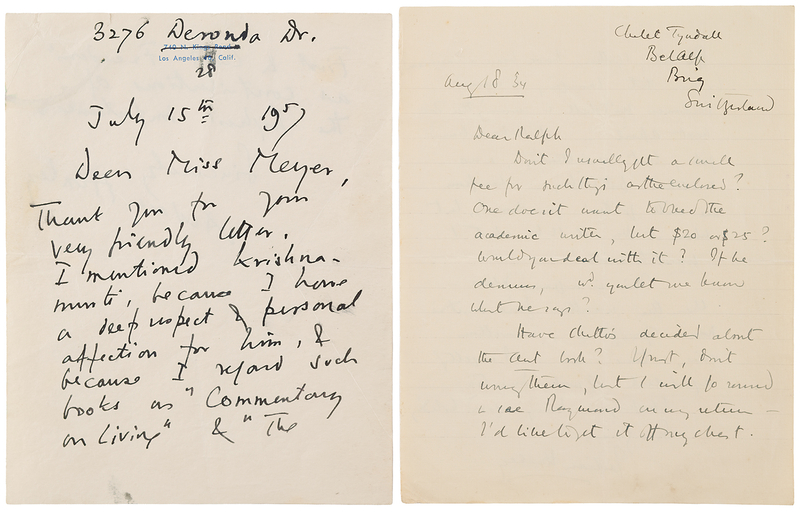 3276 Deronda Dr.
740 N. Kings Road
Los Angeles Calif.
28
July 15th 1957
Dear Miss Meyer,
Thank you for your
very friendly letter.
I mentioned Krishna-
murti, because I have
a deep respect & personal
affection for him, &
because I regard such
books as "Commentary
on Living" & "The
Chalet Tyndall
Bel Alp
Brig
Switzerland
Aug 18 34
Dear Ralph
Don't I usually get a small
fee for such things as the enclosed?
One doesn't want to bleed the
academic writer, but $20 or $25?
Would you deal with it? If he
demurs, wd. you let me know
what he says?
Have Chatto's decided about
the book? If not, don't
worry them, but I will go round
& see Raymond on my return –
I'd like to get it off my chest.